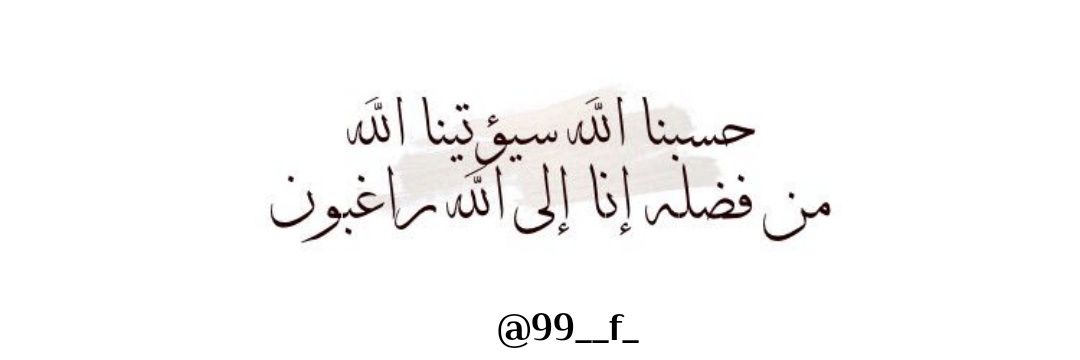 حسبنا الله سيؤتينا الله
من فضله إنا إلى الله راغبون
@99__f_